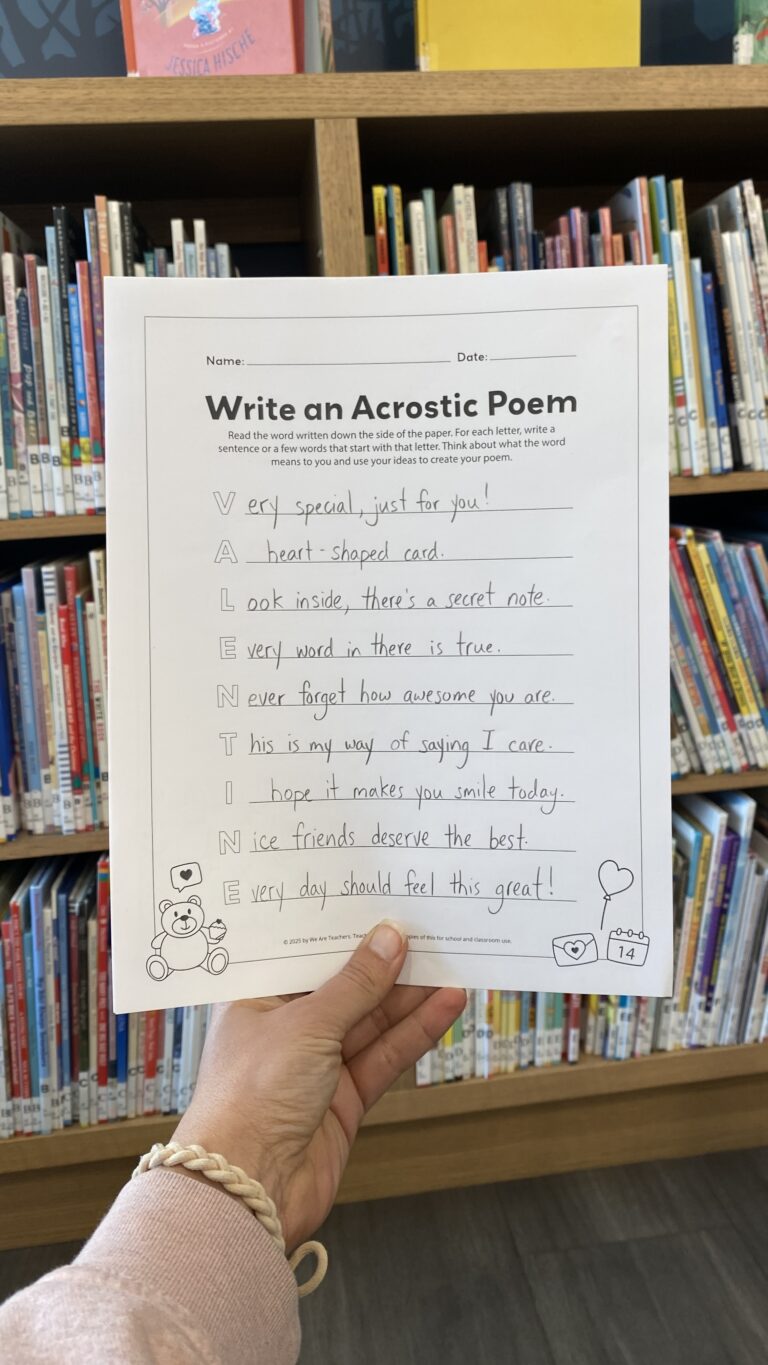 JESSICA HISCHE
Name:
Date:
Write an Acrostic Poem
Read the word written down the side of the paper. For each letter, write a
sentence or a few words that start with that letter. Think about what the word
means to you and use your ideas to create your poem.
Very special, just for you!
A heart-shaped card.
Look inside, there's a secret note.
Every word in there is true.
Never forget how awesome you are.
This is my way of saying I care.
I hope it makes you smile today.
Nice friends deserve the best.
Every day should feel this great!
14
© 2025 by We Are Teachers. copies of this for school and classroom use.